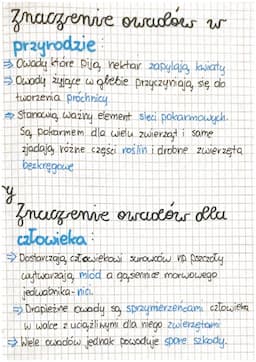 Znaczenie owadów w
przyrodzie:
⇒ Owady które piją nektar zapylają kwiaty
⇒ Owady żyjące w glebie przyczyniają się do
tworzenia próchnicy
⇒ Stanowią ważny element sieci pokarmowych.
Są pokarmem dla wielu zwierząt i same
zjadają różne części roślin i drobne zwierzęta
bezkręgowe
y
Znaczenie owadów dla
człowieka:
⇒ Dostarczają człowiekowi surowców np pszczoły
wytwarzają miód a gąsienice morwowego
jedwabnika - nici.
⇒ Drapieżne owady są sprzymierzeńcami człowieka
w walce z uciążliwymi dla niego zwierzętami
⇒ Wiele owadów jednak powoduje spore szkody.